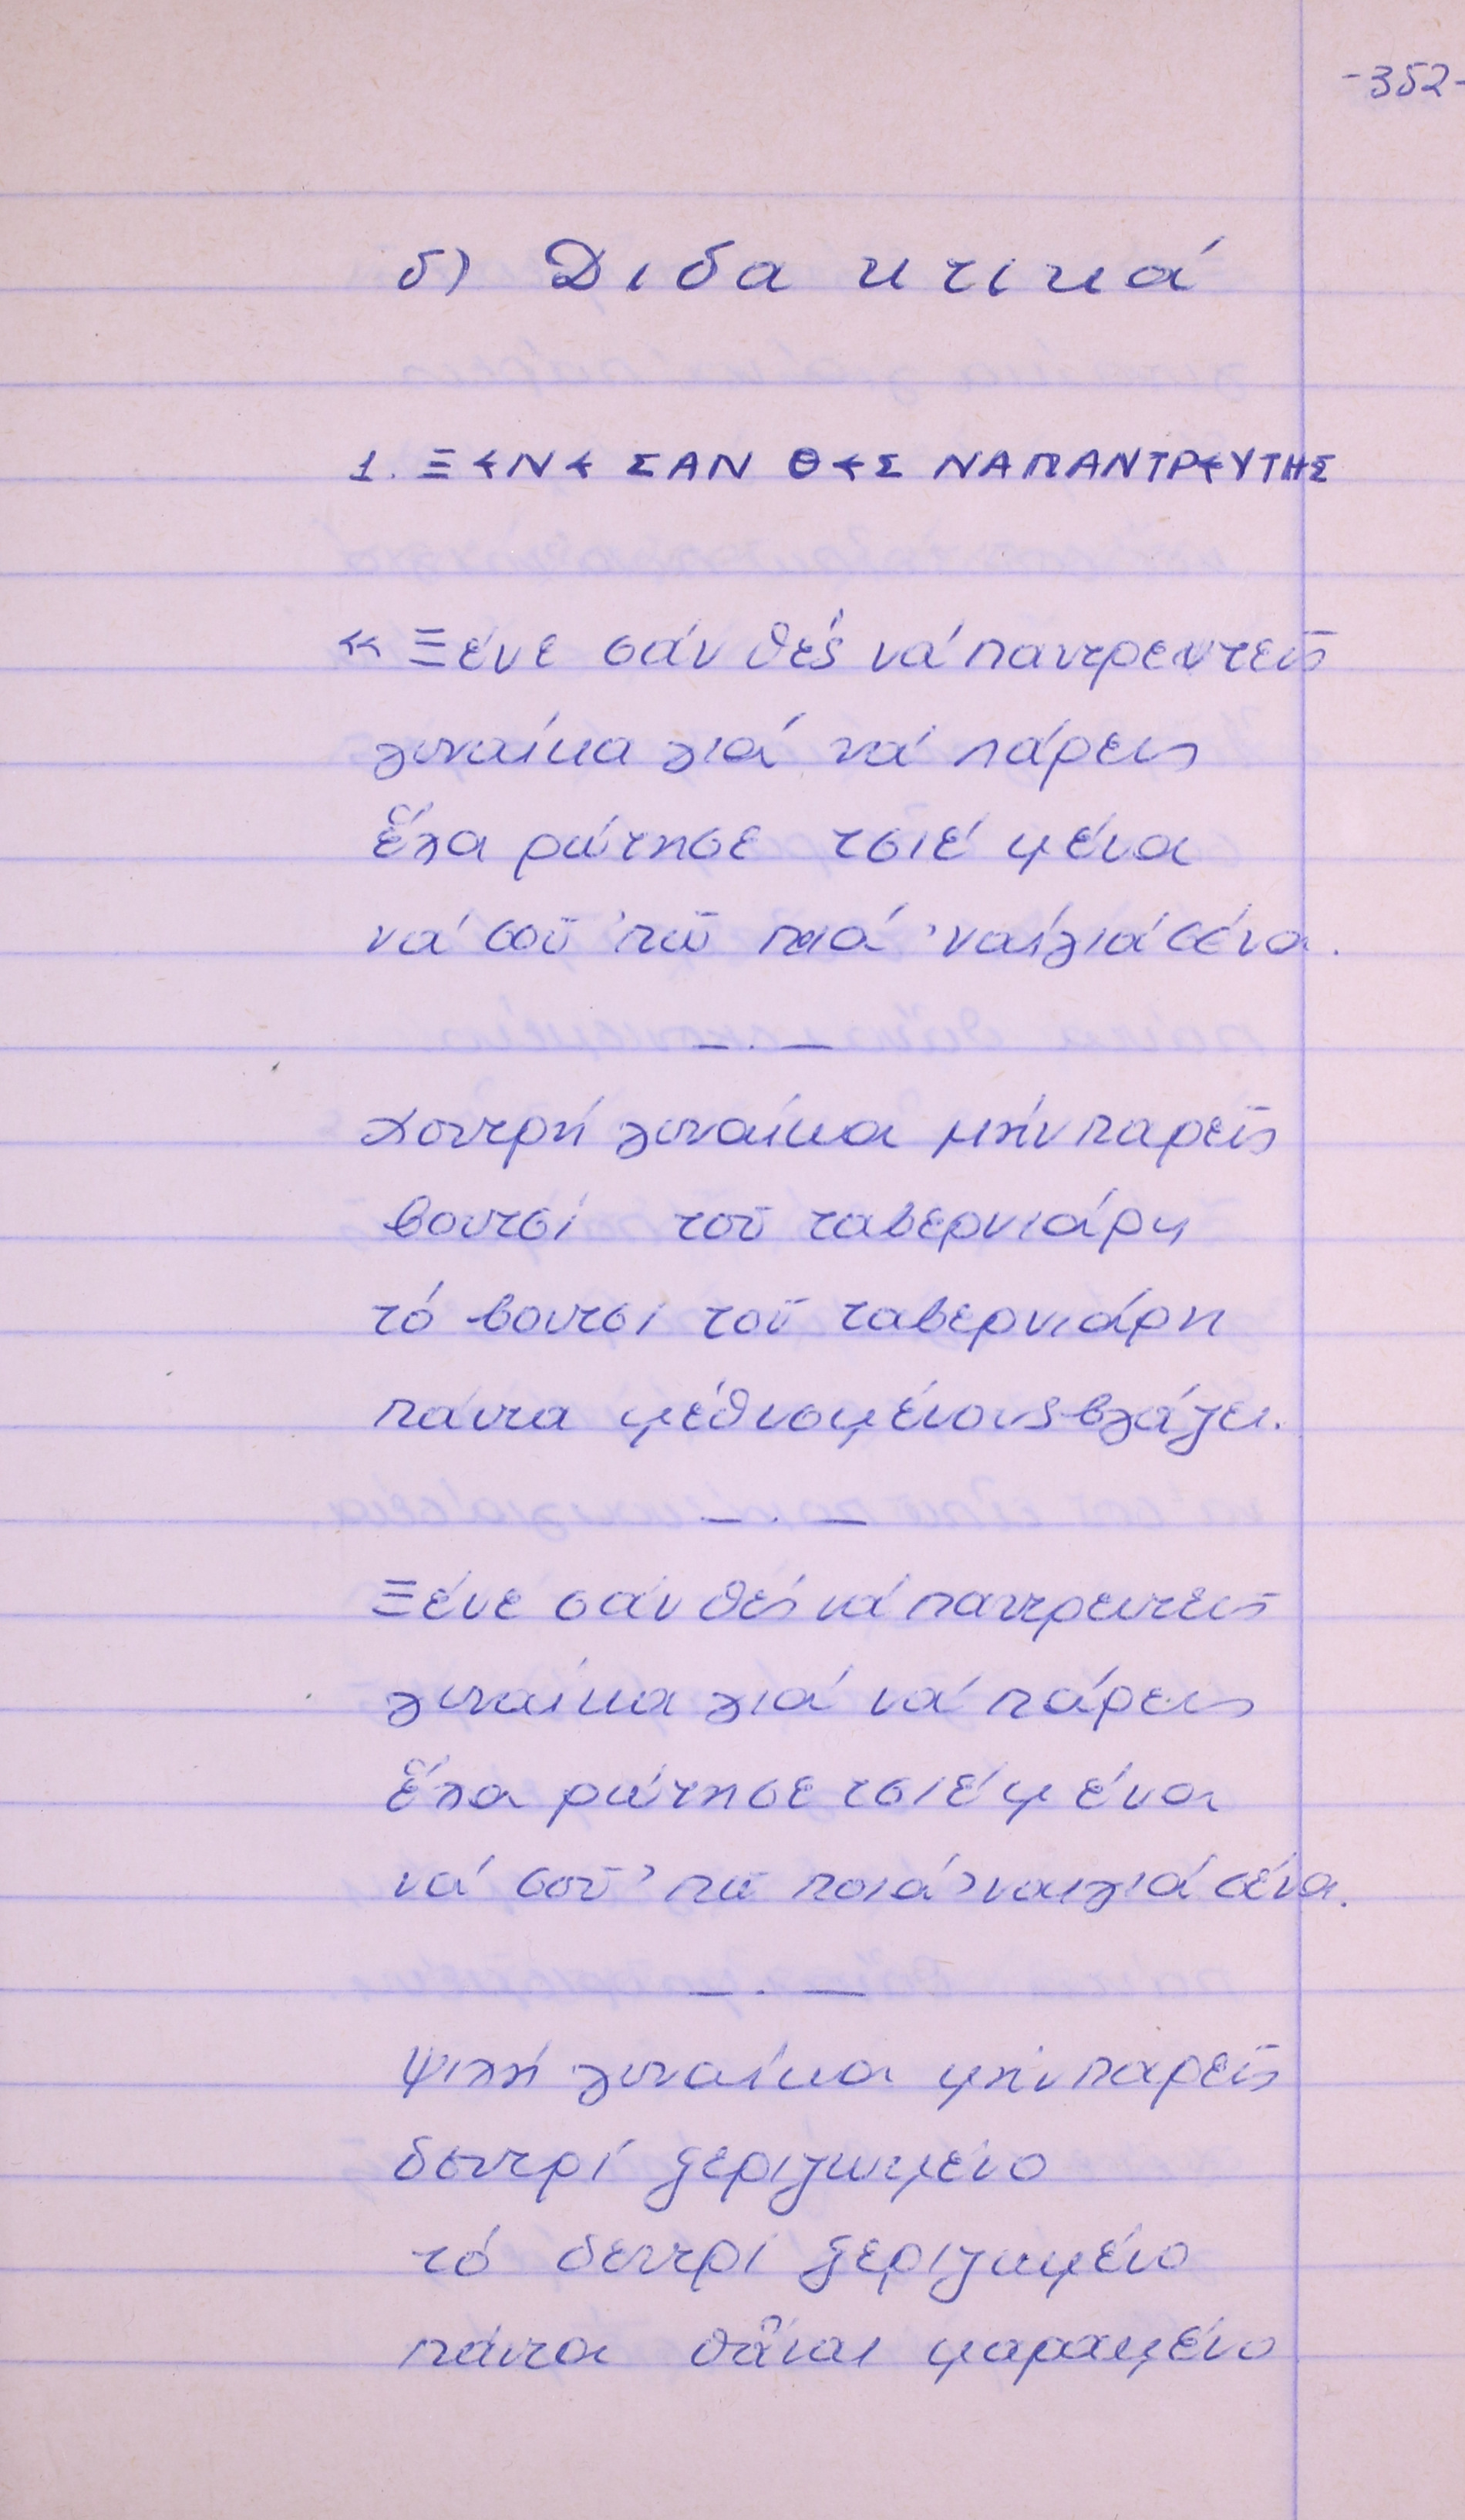 -352-
δ) Διδακτικά
1. ΞΕΝΕ ΣΑΝ ΘΕΣ ΝΑ ΠΑΝΤΡΕΥΤΗΣ
« Ξένε σάν θές νά παντρευτεῖς
γυναίκα γιά νά πάρεις
ἔλα ρώτησε τσιέ μένα
νά σοῦ 'πῶ ποιά 'ναι γιά σένα.
— . —
Χοντρή γυναίκα μήν παρεῖς
βουτσί τοῦ ταβερνιάρη
τό βουτσι τοῦ ταβερνιάρη
πάντα μέθυσμένους βγάζει.
— . —
Ξένε σάν θές νά παντρευτεῖς
γυναίκα γιά νά πάρεις
ἔλα ρώτησε τσιέ μένα
νά σοῦ 'πῶ ποιά 'ναι γιά σένα.
— . —
Ψιλή γυναίκα μήν παρεῖς
δεντρί ξεριζωμένο
τό δεντρι ξεριζωμένο
πάντα θἆναι μαραμένο